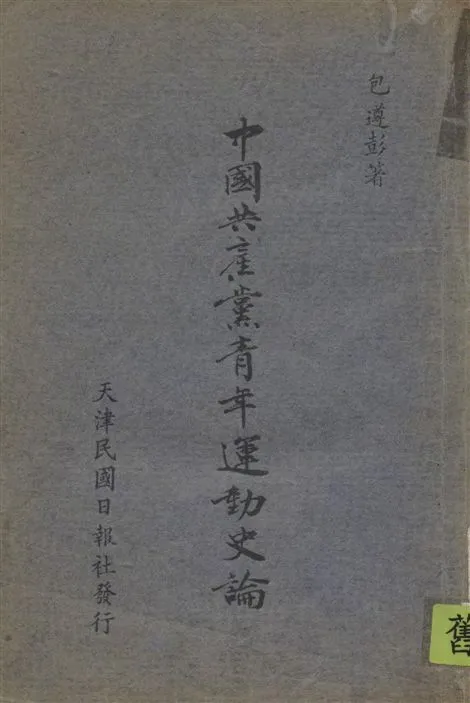 包遵彭著
中國共產黨青年運動史論
天津民國日報社發行
舊